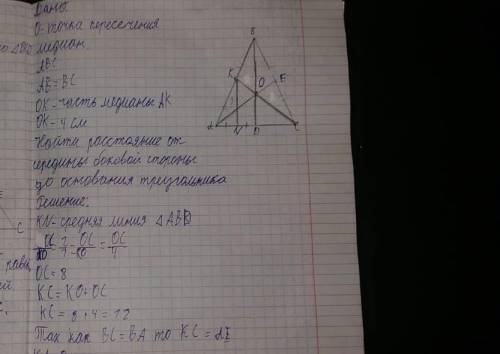 Даны
О-точка пересечения
медиан
ABC
AB=BC
OK-часть медианы AK
OK-4 см
Найти расстояние от
середины боковой стороны
до основания треугольника
Решение:
KN-средняя линия △ABD
OC = 8
KC = KO+OC
KC = 8+4=12
Так как BC=BA то KC=AE
B
K
O
E
A
N
D
C